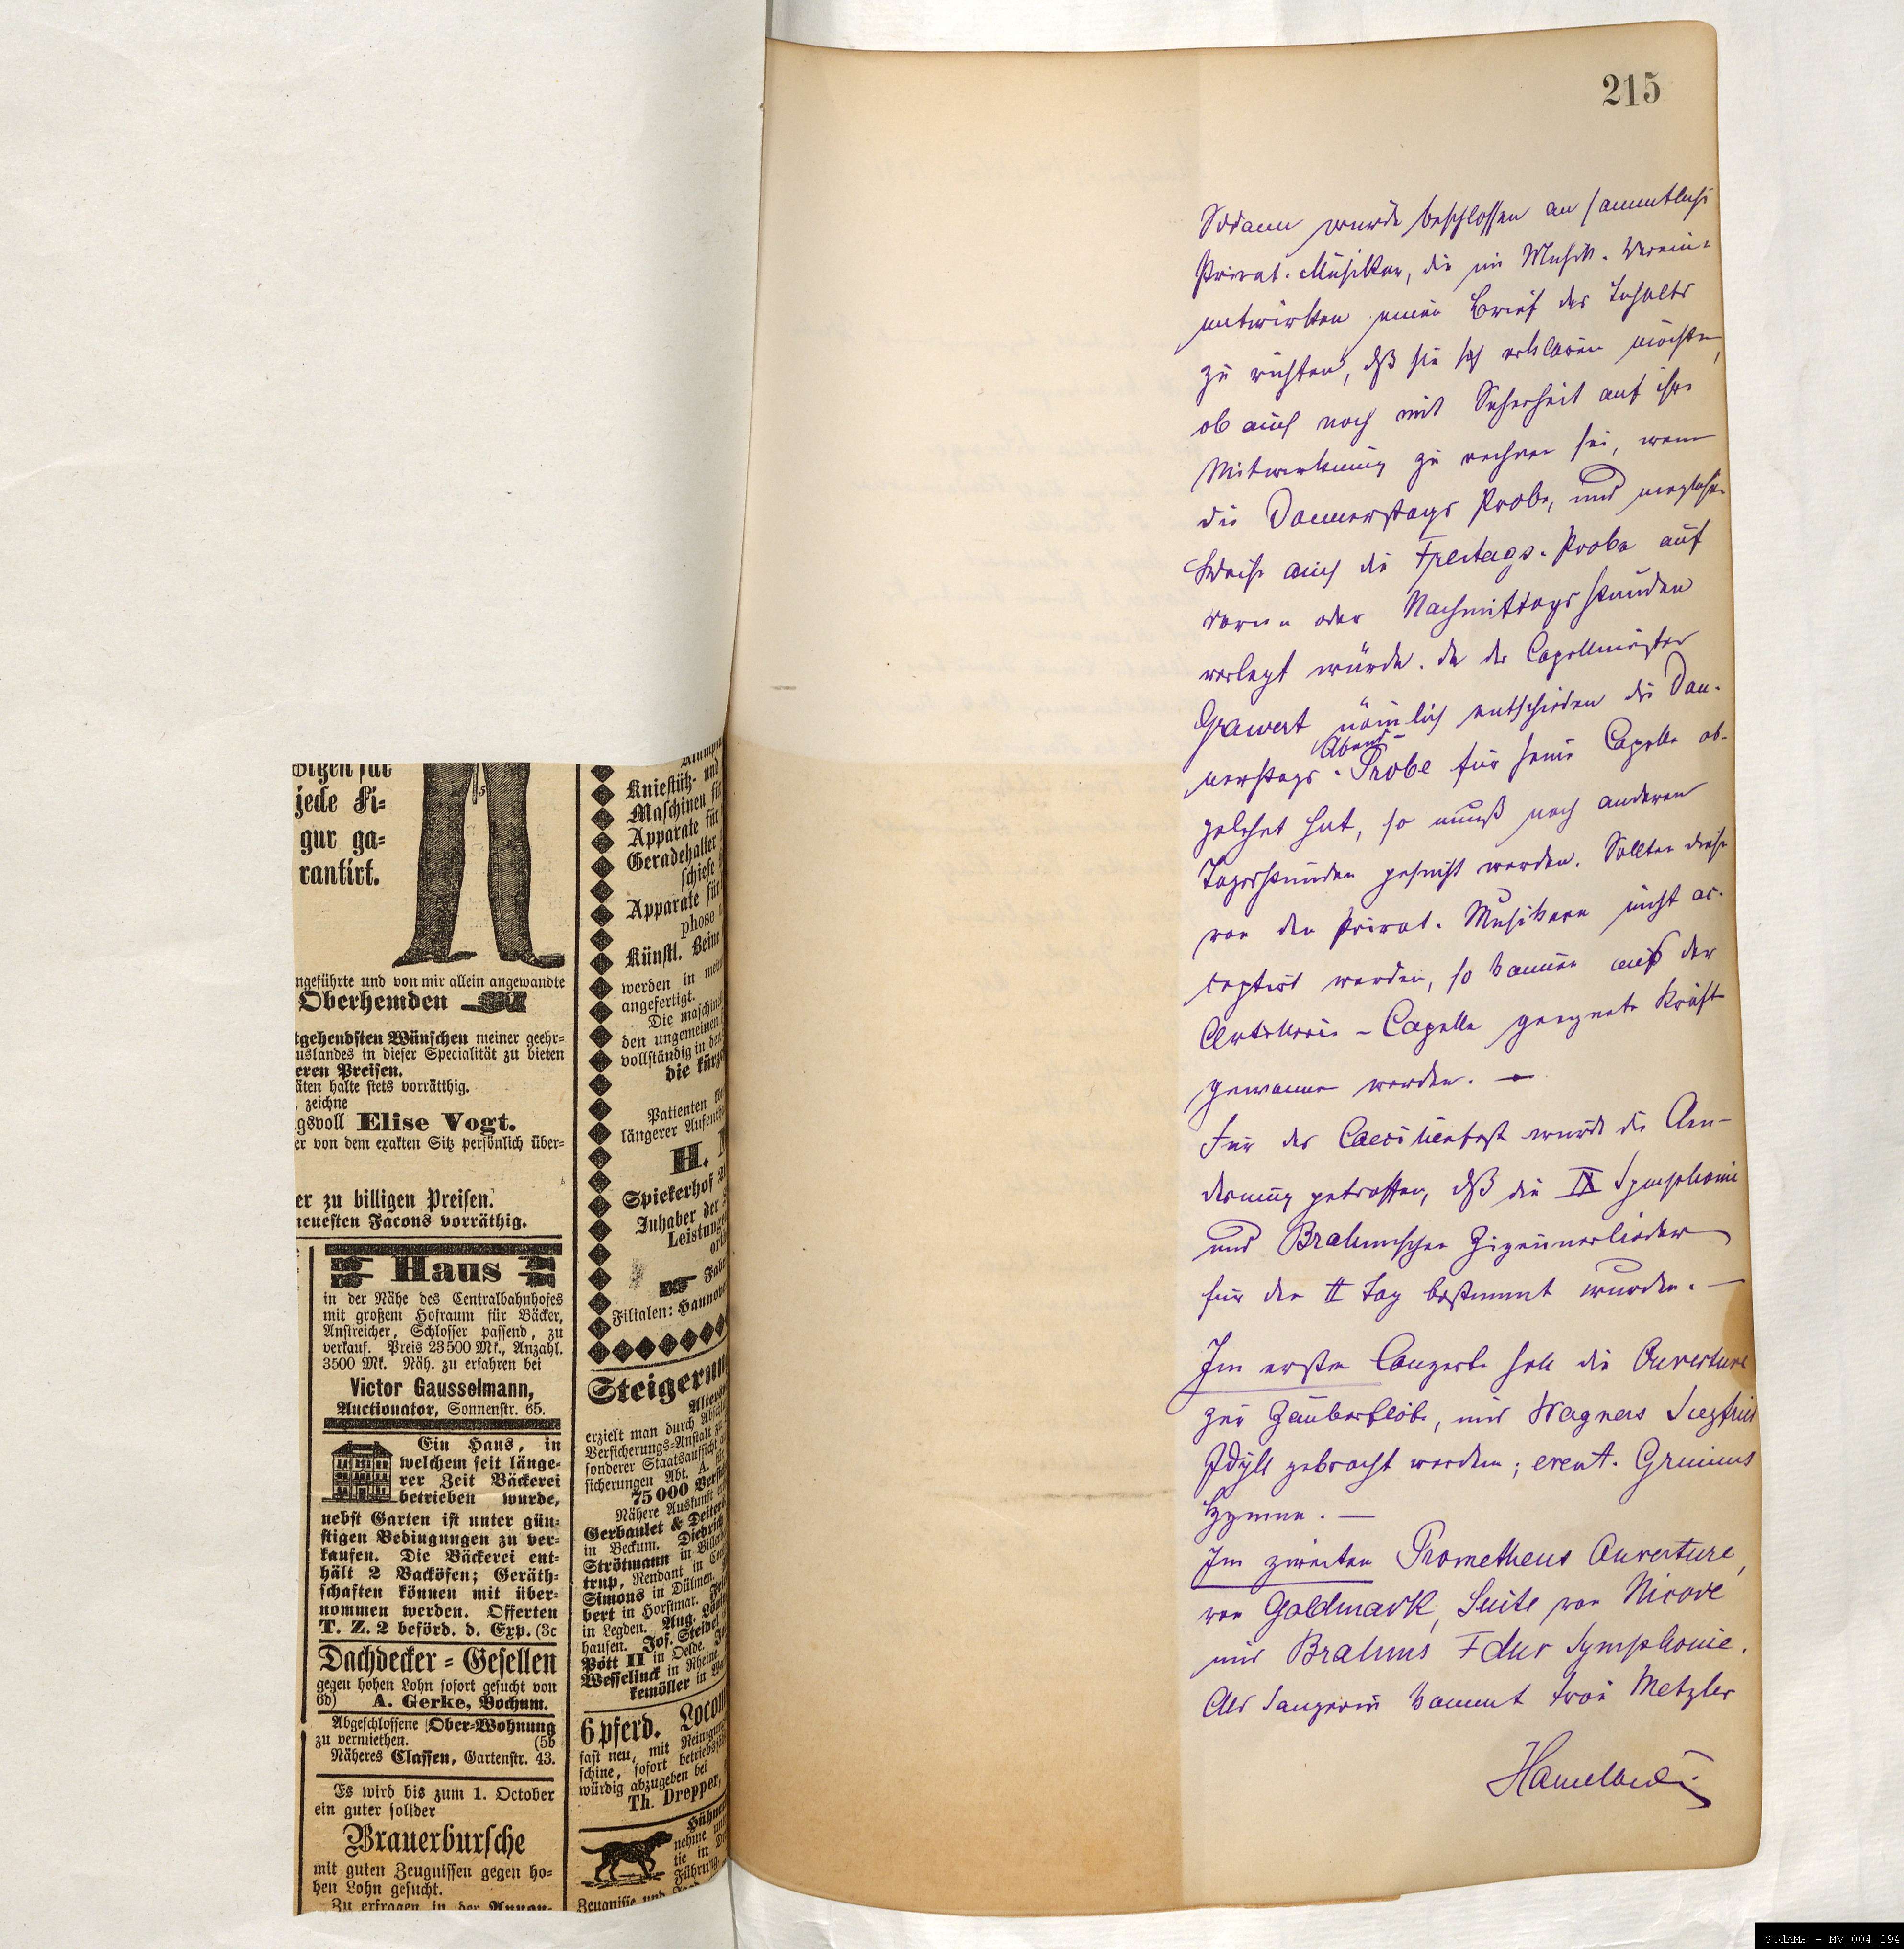 215
Sodann wurde beschlossen an sammtliche
Privat-Musiker, die im Musik-Verein
mitwirken einen Brief des Inhalts
zu richten, dß sie sich erklären möchten,
ob auch noch mit Sicherheit auf ihre
Mitwirkung zu rechnen sei, wenn
die Donnerstags Probe, und moglicher
Weise auch die Freitags-Probe auf
Vorm- oder Nachmittags stunden
verlegt würde. Da der Capellmeister
Grawert nämlich entschieden die Don-
nerstags-Abend-Probe für seine Capelle ab-
gelehnt hat, so muß nach anderen
Tagesstunden gesucht werden. Sollten diese
von den Privat-Musikern nicht ac-
ceptirt werden, so können aus der
Artillerie-Capelle geeignete Kräfte
gewonnen werden. —
Für das Caecilienfest wurde die Aen-
derung getroffen, dß die IX Symphonie
und Brahmsschen Zigeunerlieder
für den II Tag bestimmt wurden. —
Im ersten Conzerte soll die Ouverture
zur Zauberflöte, und Wagners Siegfried
Idyll gebracht werden; event. Grimms
Hymne. —
Im zweiten Prometheus Ouverture,
von Goldmark, Suite von Nicodé
und Brahms Fdur Symphonie.
Als Sangerin kommt Frau Metzler
jede Fi-
gur ga-
rantirt.
ngeführte und von mir allein angewandte
Oberhemden
tgehendsten Wünschen meiner geehr-
uslandes in dieser Specialität zu bieten
eren Preisen.
äten halte stets vorräthig.
, zeichne
gsvoll Elise Vogt.
er von dem exakten Sitz persönlich über-
er zu billigen Preisen.
neuesten Facons vorräthig.
Haus
in der Nähe des Centralbahnhofes
mit großem Hofraum für Bäcker,
Anstreicher, Schlosser passend, zu
verkauf. Preis 23500 Mk., Anzahl.
3500 Mk. Näh. zu erfahren bei
Victor Gausselmann,
Auctionator, Sonnenstr. 65.
Ein Haus, in
welchem seit länge-
rer Zeit Bäckerei
betrieben wurde,
nebst Garten ist unter gün-
stigen Bedingungen zu ver-
kaufen. Die Bäckerei ent-
hält 2 Backöfen; Geräth-
schaften können mit über-
nommen werden. Offerten
T. Z. 2 beförd. d. Exp. (3c
Dachdecker-Gesellen
gegen hohen Lohn sofort gesucht von
6d) A. Gerke, Bochum.
Abgeschlossene Ober-Wohnung
zu vermiethen. (5b
Näheres Classen, Gartenstr. 43.
Es wird bis zum 1. October
ein guter solider
Brauerbursche
mit guten Zeugnissen gegen ho-
hen Lohn gesucht.
Zu erfragen in der Annon-
Kniestütz- und
Maschinen für
Apparate für
Geradehalter
schiefe
Apparate für
phoso
Künstl. Beine
werden in mei
angefertigt.
Die maschine
den ungemeinen
vollständig in de
die kürz
Patienten
längerer Aufent
H.
Spiekerhof
Inhaber der
Leistung
Filialen: Hannov
Steigerun
erzielt man durch
Versicherungs-Anstalt zu
sonderer Staatsaufsicht
sicherungen Abt. A.
75 000 Ver
Nähere Auskunft
Gerbaulet & Deiters
in Beckum. Diedrich
Strötmann in Biller
trup, Rendant in Coe
Simons in Dülmen.
bert in Horstmar.
in Legden. Aug.
hausen. Jos. Steidel
Pött II in Oelde.
Wesselinck in Rheine.
kemöller in
6pferd. Locom
fast neu, mit Reinigun
schine, sofort betriebs
würdig abzugeben bei
Th. Drepper,
Hühner
nehme
tie in
Führung.
Zeugnisse und
StdAMs - MV_004_294